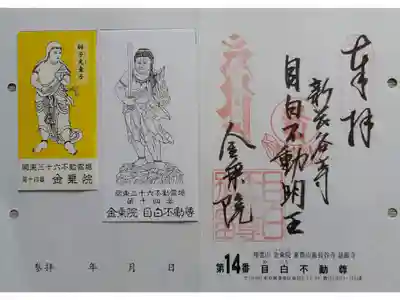 獅子光童子
関東三十六不動霊場
第十四番 金乗院
関東三十六不動霊場
第十四番
金乗院 目白不動尊
参拝 年 月 日
奉拝
新長谷寺
目白不動明王
金乗院
第14番 目白不動尊